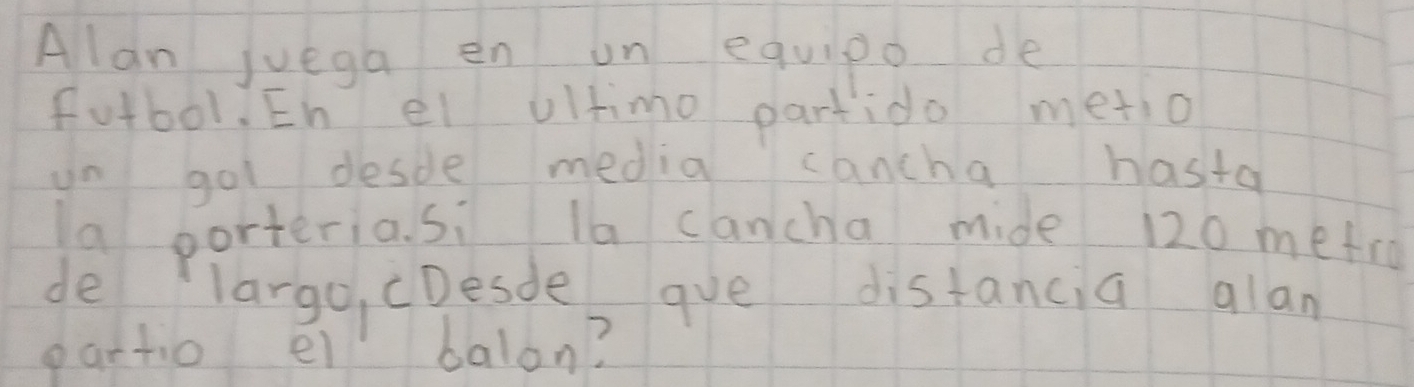 Alan juega en un equipo de
futbol. En el ultimo partido metio
un gol desde media cancha hasta
la porteria. Si la cancha mide 120 metro
de largo, ¿Desde que distancia alan
partio el balon?